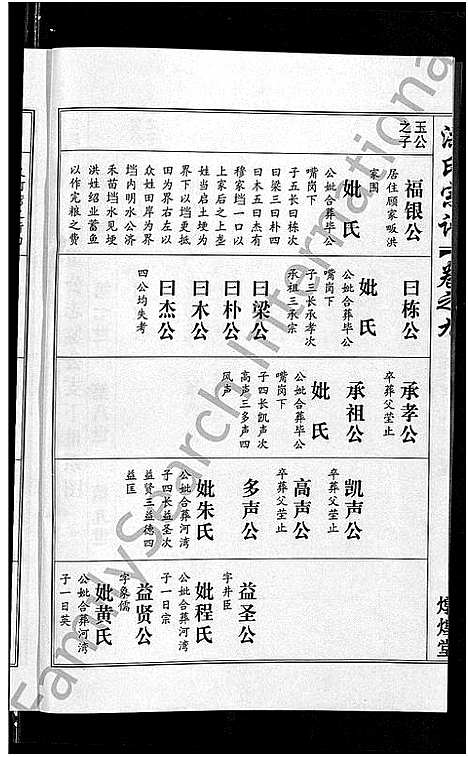 洪氏宗谱 卷之九
煌煌堂
玉公
之子
福银公
居住顾家畈洪
家围
妣 氏
公妣合葬毕公
嘴岗下
子五长曰栋次
曰梁三曰朴四
曰木五曰杰有
穆家垱一口以
上家后之上垄
姓当启土埂为
界下以垱更抵
田为界右左以
众姓田岸为界
垱内明水公济
禾苗垱水见埂
洪姓绍业蓄鱼
以作完粮之费
曰栋公
妣 氏
公妣合葬毕公
嘴岗下
子三长承孝次
承祖三承宗
曰梁公
曰朴公
曰木公
曰杰公
四公均失考
承孝公
卒葬父茔止
承祖公
妣 氏
公妣合葬毕公
嘴岗下
子四长凯声次
高声三多声四
风声
凯声公
卒葬父茔止
高声公
卒葬父茔止
多声公
妣朱氏
公妣合葬河湾
子四长益圣次
益贤三益德四
益匡
益圣公
字井臣
妣程氏
公妣合葬河湾
子一日宗
益贤公
字象儒
妣黄氏
公妣合葬河湾
子一日英
FamilySearch International